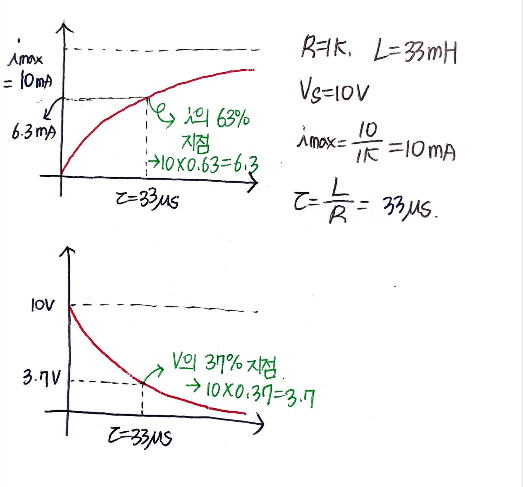 imax
= 10mA
6.3mA
i의 63%
지점
→10×0.63=6.3
τ=33μs
R=1K. L=33mH
Vs=10V
imax=10/1K=10mA
τ=L/R=33μs.
10V
3.7V
V의 37% 지점
→ 10×0.37=3.7
τ=33μs